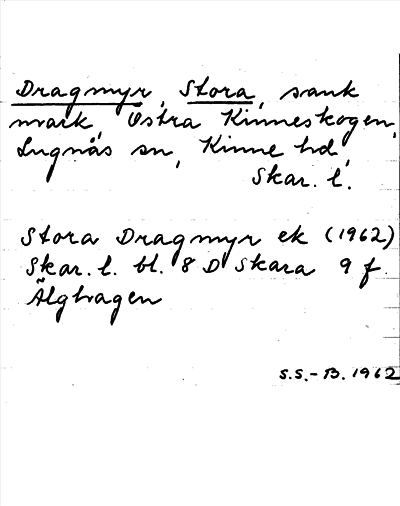 Dragmyr, Stora, sank
mark, Östra Kinneskogen,
Lugnås sn, Kinne hd,
Skar. l.
Stora Dragmyr ek (1962)
Skar. l. bl. 8 D Skara 9 f.
Älghagen
S.S.-B. 1962